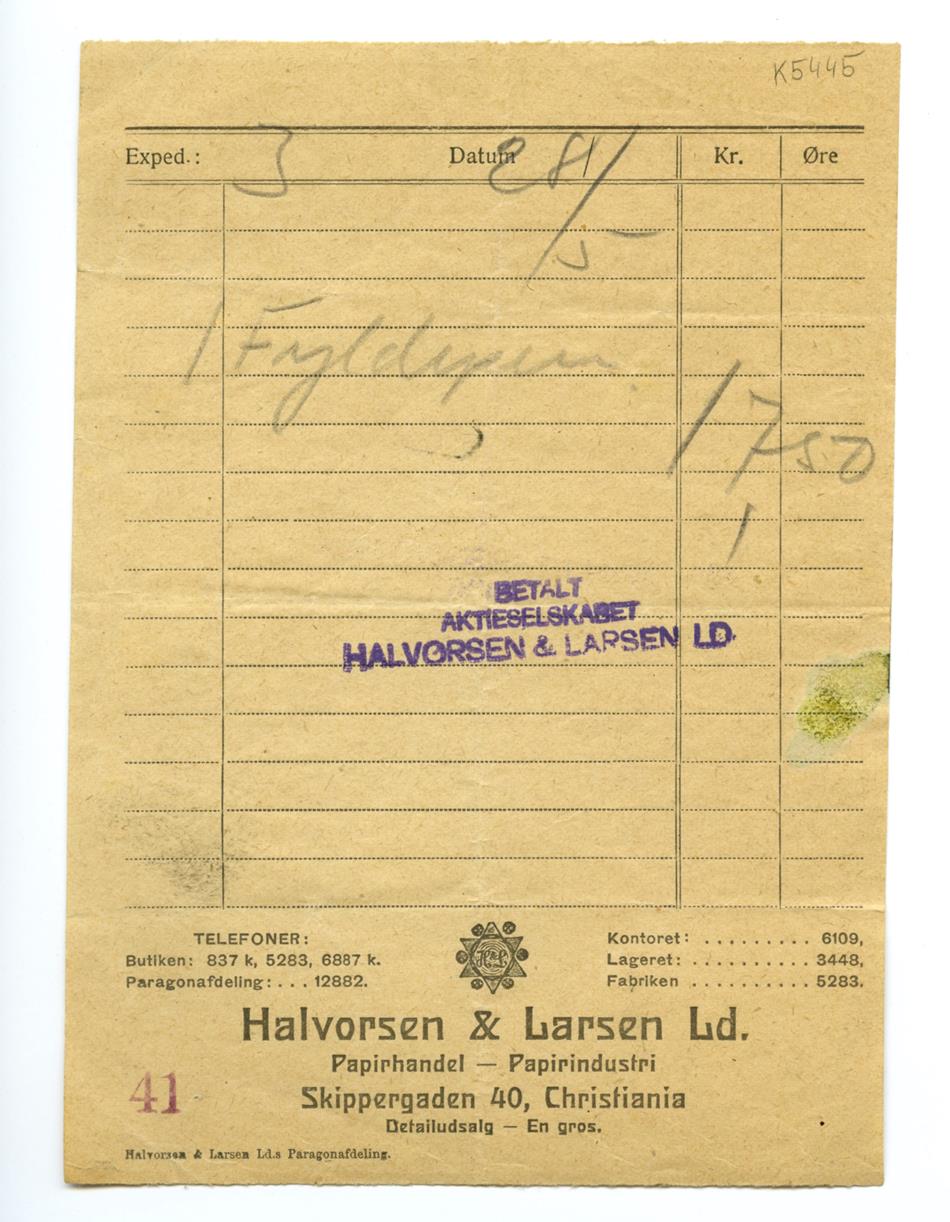 K5445
Exped.: 3 Datum 28/5 Kr. Øre
1 Fyldepen
17 50
BETALT
AKTIESELSKABET
HALVORSEN & LARSEN LD.
TELEFONER:
Butiken: 837 k, 5283, 6887 k.
Paragonafdeling: . . . 12882.
H&L
Kontoret: . . . . . . . . . 6109,
Lageret: . . . . . . . . . . 3448,
Fabriken . . . . . . . . . . 5283.
Halvorsen & Larsen Ld.
Papirhandel — Papirindustri
Skippergaden 40, Christiania
Detailudsalg — En gros.
41
Halvorsen & Larsen Ld.s Paragonafdeling.